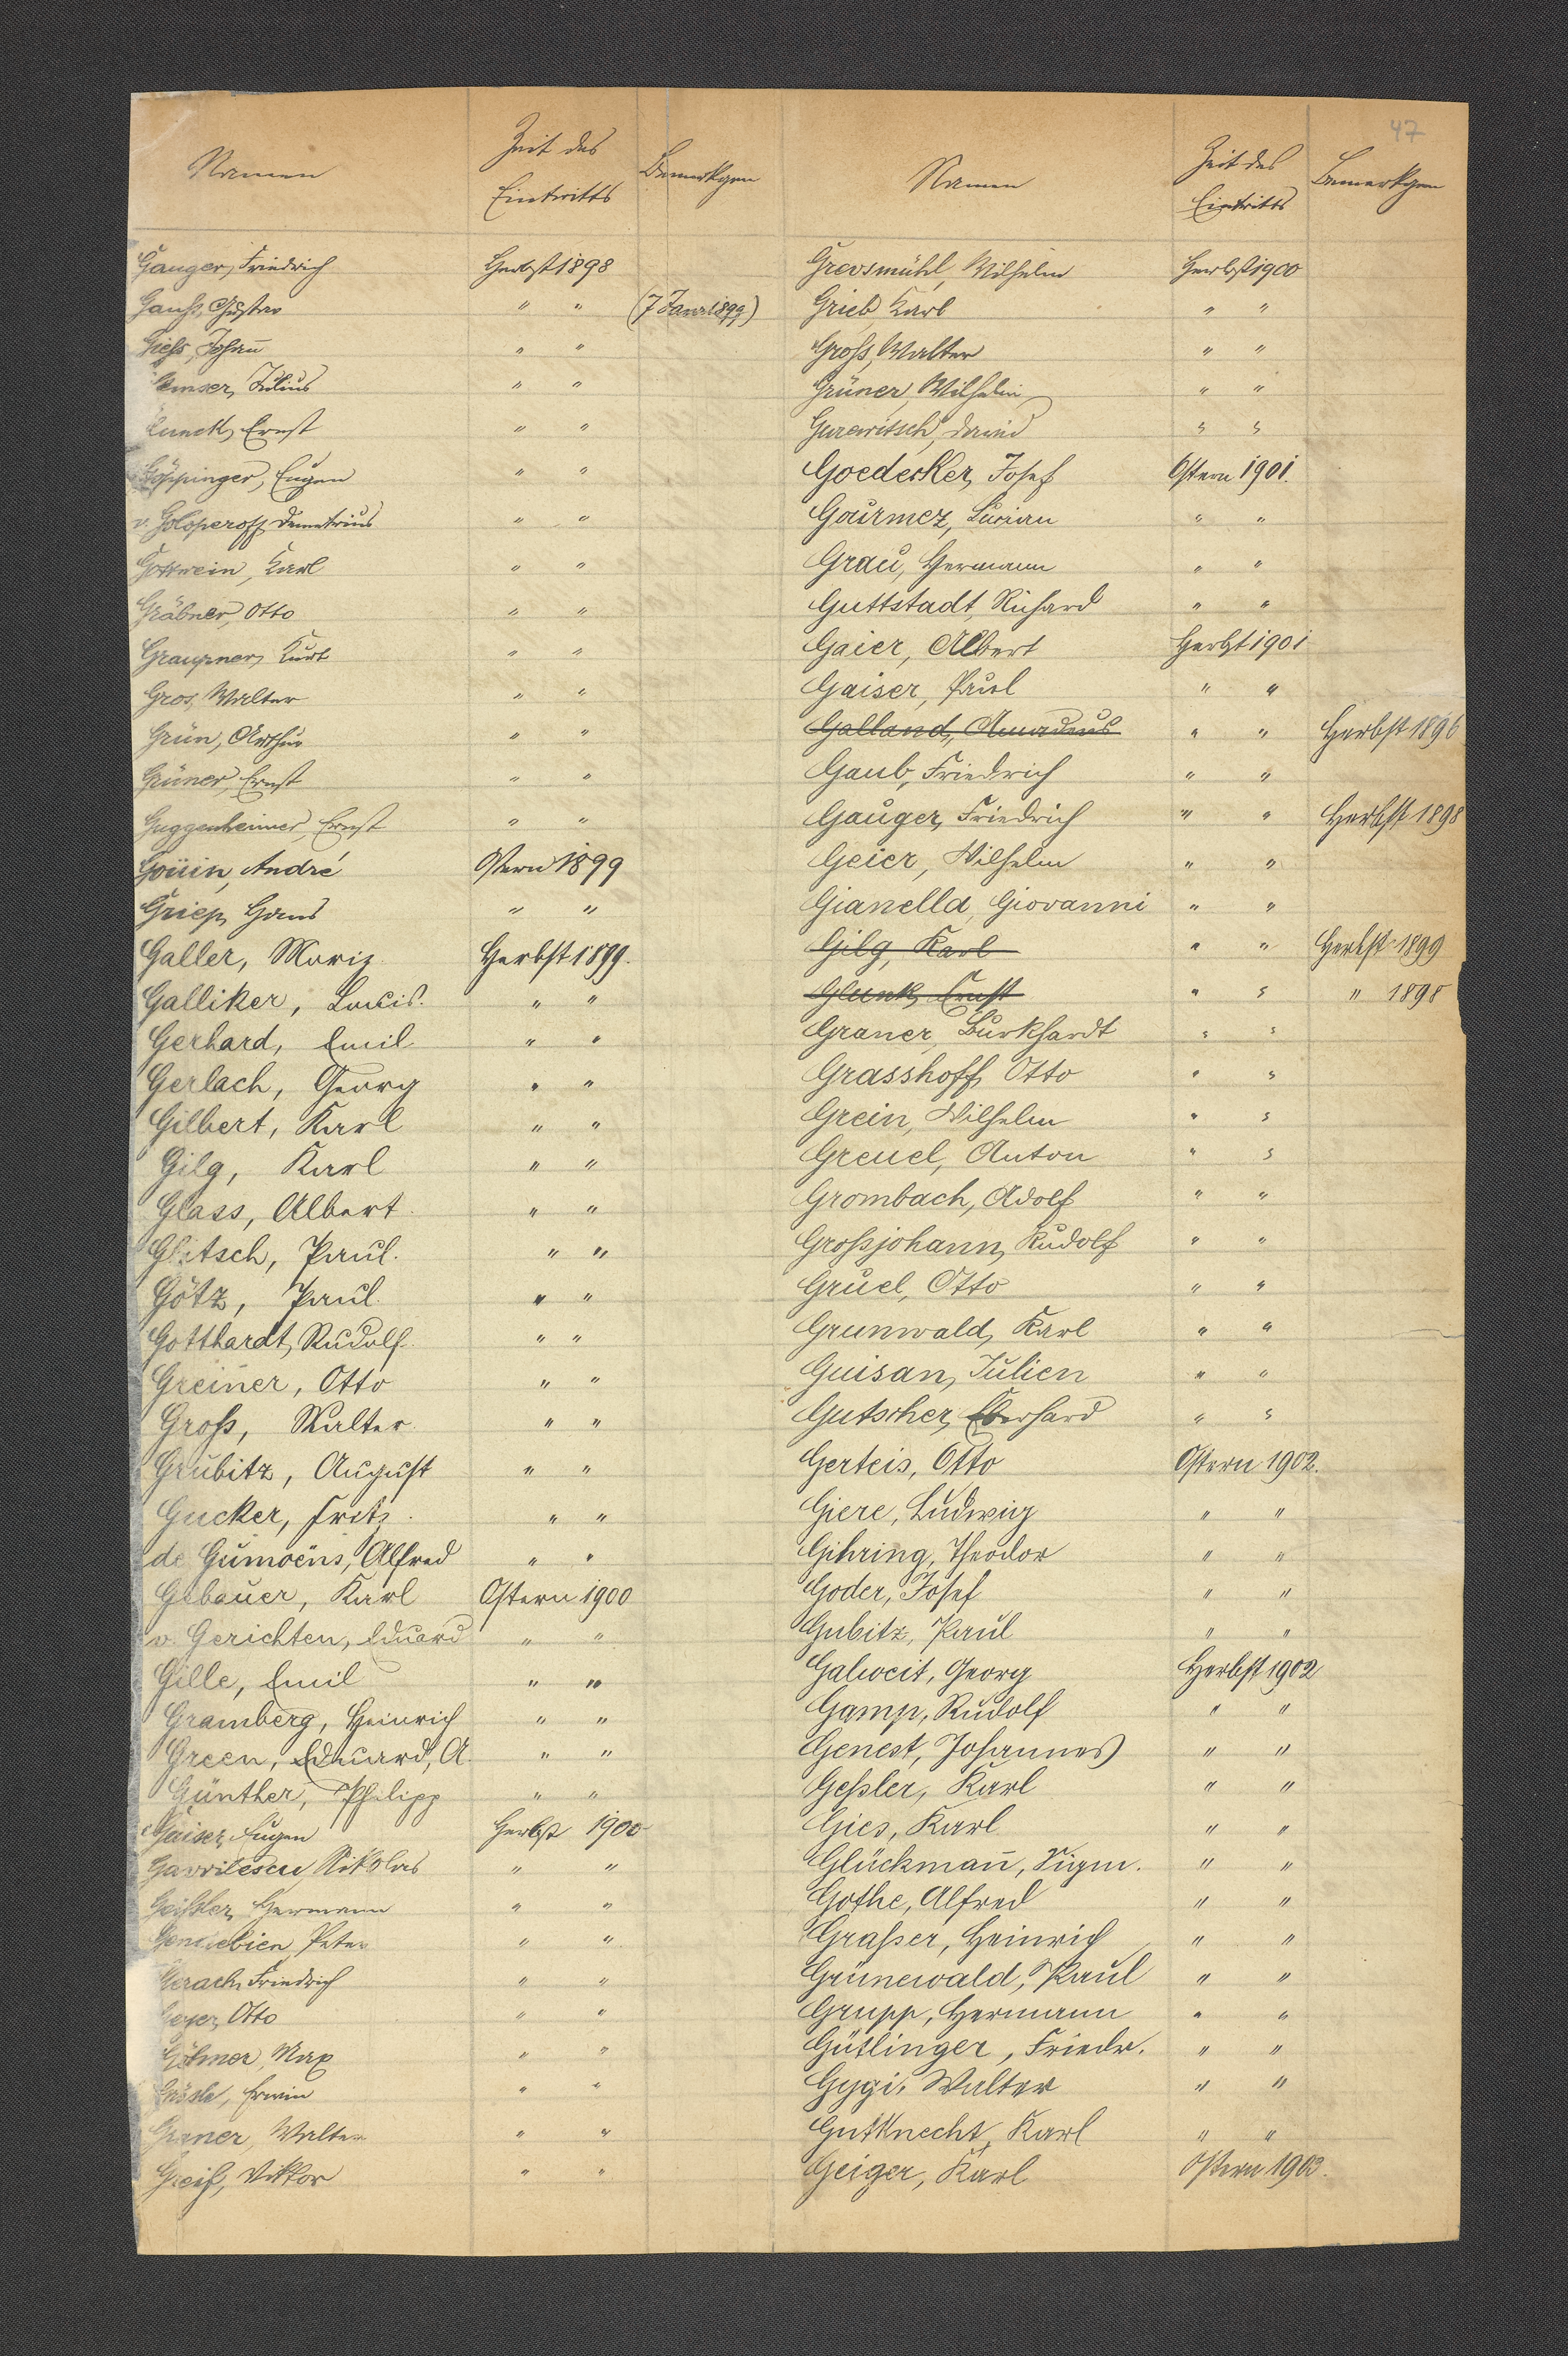 47
Namen Zeit des Eintritts Bemerkgen
Gauger, Friedrich Herbst 1898
Gauß, Gustav " " (7 Janr. 1899)
Gieß, Johan̄ " "
Julius " "
Ernst " "
Göppinger, Eugen " "
v. Goloperoff, Demetrius " "
Gottwein, Karl " "
Gräbner, Otto " "
Graupner, Kurt " "
Gros, Walter " "
Grün, Arthur " "
Grüner, Ernst " "
Guggenheimer, Ernst " "
Goüin, André Ostern 1899
Griep, Hans " "
Galler, Moriz Herbst 1899.
Galliker, Louis. " "
Gerhard, Emil " "
Gerlach, Georg " "
Gilbert, Karl " "
Gilg, Karl " "
Glass, Albert " "
Glitsch, Paul. " "
Götz, Paul " "
Gotthardt, Rudolf " "
Greiner, Otto " "
Groß, Walter " "
Grubitz, August " "
Gucker, Fritz. " "
de Gumoëns, Alfred " "
Gebauer, Karl Ostern 1900
v. Gerichten, Eduard " "
Gille, Emil " "
Gramberg, Heinrich " "
Green, Eduard, A. " "
Günther, Philipp " "
Gaiser, Eugen Herbst 1900
Gavrilescu, Nikolas " "
Geißler, Hermann " "
Gendebien, Peter " "
Gerach, Friedrich " "
Geyer, Otto " "
Max " "
Erwin " "
Graner, Walter " "
Greiß, Viktor " "
Namen Zeit des Eintritts Bemerkgen
Grevsmühl, Wilhelm Herbst 1900
Grieb, Karl " "
Groß, Walter " "
Grüner, Wilhelm " "
Gurewitsch, David " "
Goederker, Josef Ostern 1901.
Gourmez, Lucian " "
Grau, Hermann " "
Guttstadt, Richard " "
Gaier, Albert Herbst 1901
Gaiser, Paul " "
Galland, Amadeus " " Herbst 1896
Gaub, Friedrich " "
Gauger, Friedrich " " Herbst 1898
Geier, Wilhelm " "
Gianella, Giovanni " "
Gilg, Karl " " Herbst 1899
Glunk, Ernst " " " 1898
Graner, Burkhardt " "
Grasshoff, Otto " "
Grein, Wilhelm " "
Greuel, Anton " "
Grombach, Adolf " "
Großjohann, Rudolf " "
Gruel, Otto " "
Grunwald, Karl " "
Guisan, Julien " "
Gutscher, Eberhard " "
Gerteis, Otto Ostern 1902.
Giere, Ludwig " "
Gihring, Theodor " "
Goder, Josef " "
Gubitz, Paul " "
Galwcit, Georg Herbst 1902
Gamp, Rudolf " "
Genest, Johannes " "
Geßler, Karl " "
Gies, Karl " "
Glückman̄, Sigm. " "
Gothe, Alfred " "
Graßer, Heinrich " "
Grünewald, Paul " "
Grupp, Hermann " "
Gütlinger, Friedr. " "
Gygi, Walter " "
Gutknecht, Karl " "
Geiger, Karl Ostern 1903.